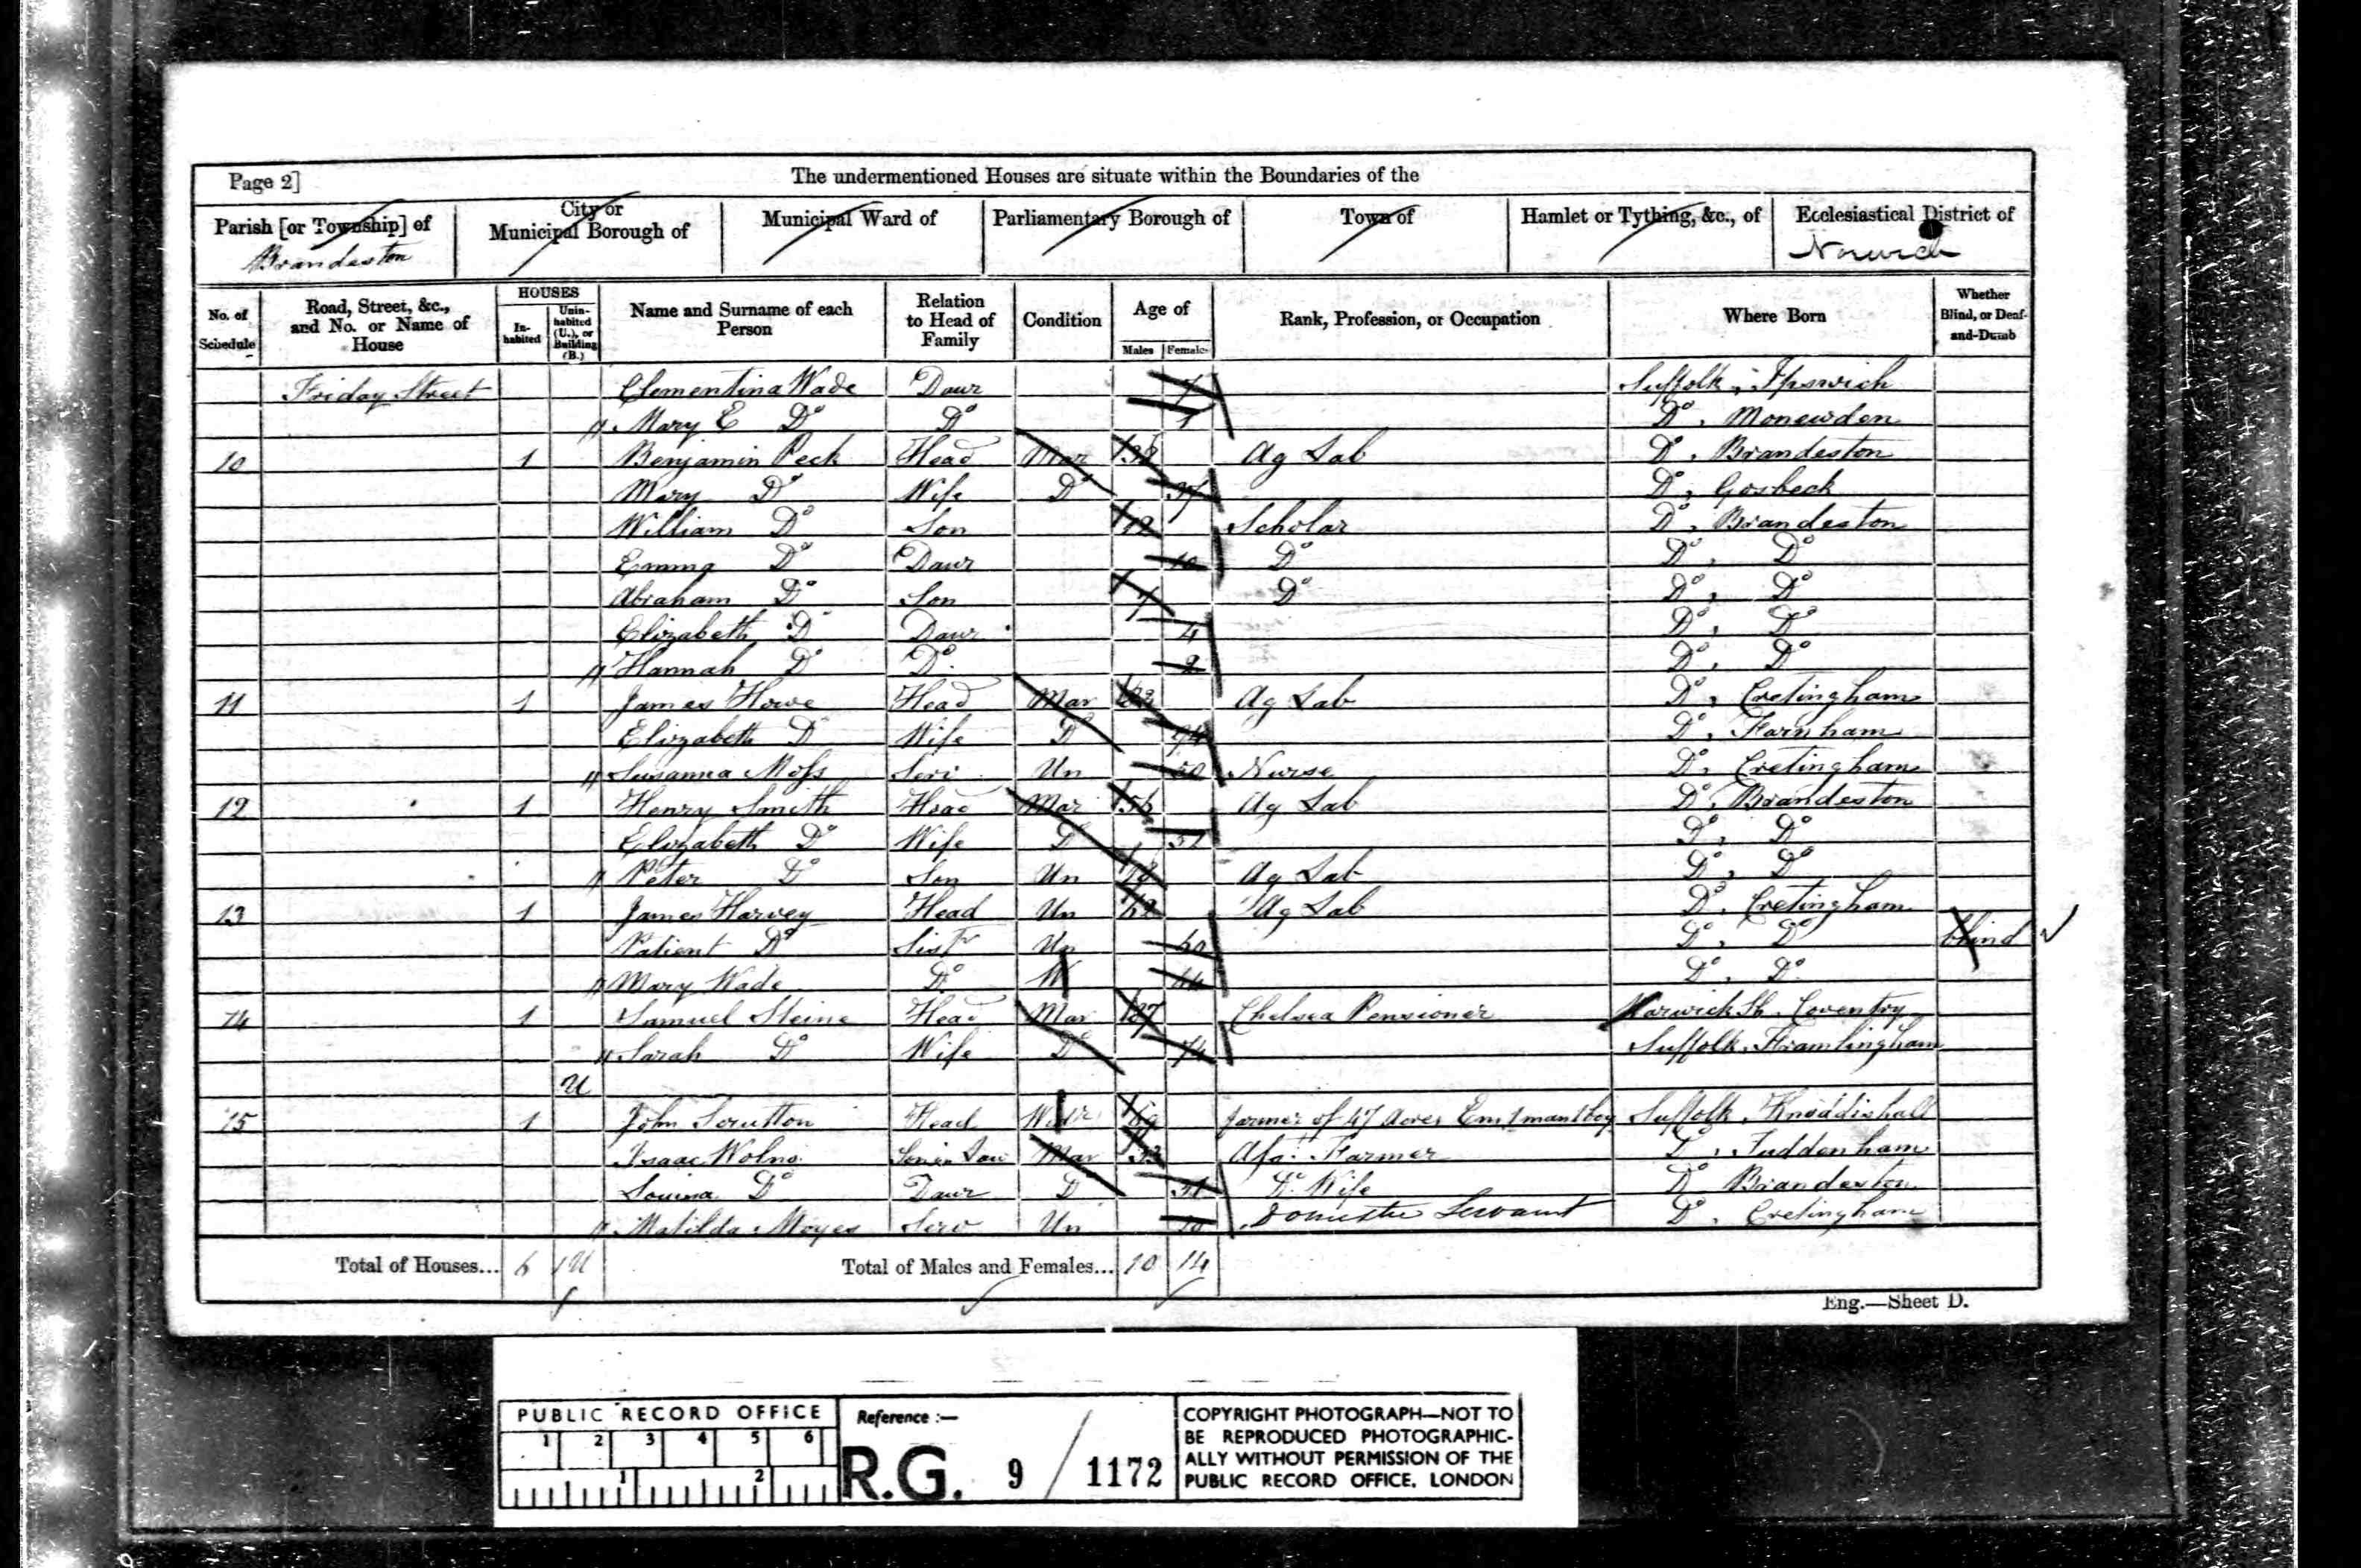 Page 2]
The undermentioned Houses are situate within the Boundaries of the
Parish [or Township] of
Brandeston
City or
Municipal Borough of
Municipal Ward of
Parliamentary Borough of
Town of
Hamlet or Tything, &c., of
Ecclesiastical District of
Norwich
No. of
Schedule
Road, Street, &c.,
and No. or Name of
House
HOUSES
In-
habited
Unin-
habited
(U.), or
Building
(B.)
Name and Surname of each
Person
Relation
to Head of
Family
Condition
Age of
Males Females
Rank, Profession, or Occupation
Where Born
Whether
Blind, or Deaf-
and-Dumb
Friday Street Clementina Wade Daur Suffolk, Ipswich
Mary E Do Do 1 Do, Monewden
10 1 Benjamin Peck Head Mar 38 Ag Lab Do, Brandeston
Mary Do Wife Do 37 Do, Gosbeck
William Do Son 12 Scholar Do, Brandeston
Emma Do Daur 10 Do Do, Do
Abraham Do Son 7 Do Do, Do
Elizabeth Do Daur 4 Do, Do
Hannah Do Do 2 Do, Do
11 1 James Howe Head Mar Ag Lab Do, Cretingham
Elizabeth Do Wife Do Do, Farnham
Susanna Moss Serv Un 50 Nurse Do, Cretingham
12 1 Henry Smith Head Mar Ag Lab Do, Brandeston
Elizabeth Do Wife Do 51 Do, Do
Peter Do Son Un Ag Lab Do, Do
13 1 James Harvey Head Un Ag Lab Do, Cretingham
Patient Do Sistr Un Do, Do blind
Mary Wade Do W Do, Do
14 1 Samuel Steine Head Mar Chelsea Pensioner Warwick Sh. Coventry
Sarah Do Wife Do 74 Suffolk, Framlingham
U
15 1 John Scrutton Head Widr 69 farmer of 47 Acres Em 1 man 1 boy Suffolk, Knoddishall
Isaac Wolno Son in Law Mar Farmer Do, Tuddenham
Louisa Do Daur Do 31 Do Wife Do Brandeston
Matilda Moyes Serv Un Domestic Servant Do, Cretingham
Total of Houses... 6 1U Total of Males and Females... 10 14
Eng.—Sheet D.
PUBLIC RECORD OFFICE
1 2 3 4 5 6
1 2
Reference :—
R.G. 9 / 1172
COPYRIGHT PHOTOGRAPH—NOT TO
BE REPRODUCED PHOTOGRAPHIC-
ALLY WITHOUT PERMISSION OF THE
PUBLIC RECORD OFFICE, LONDON